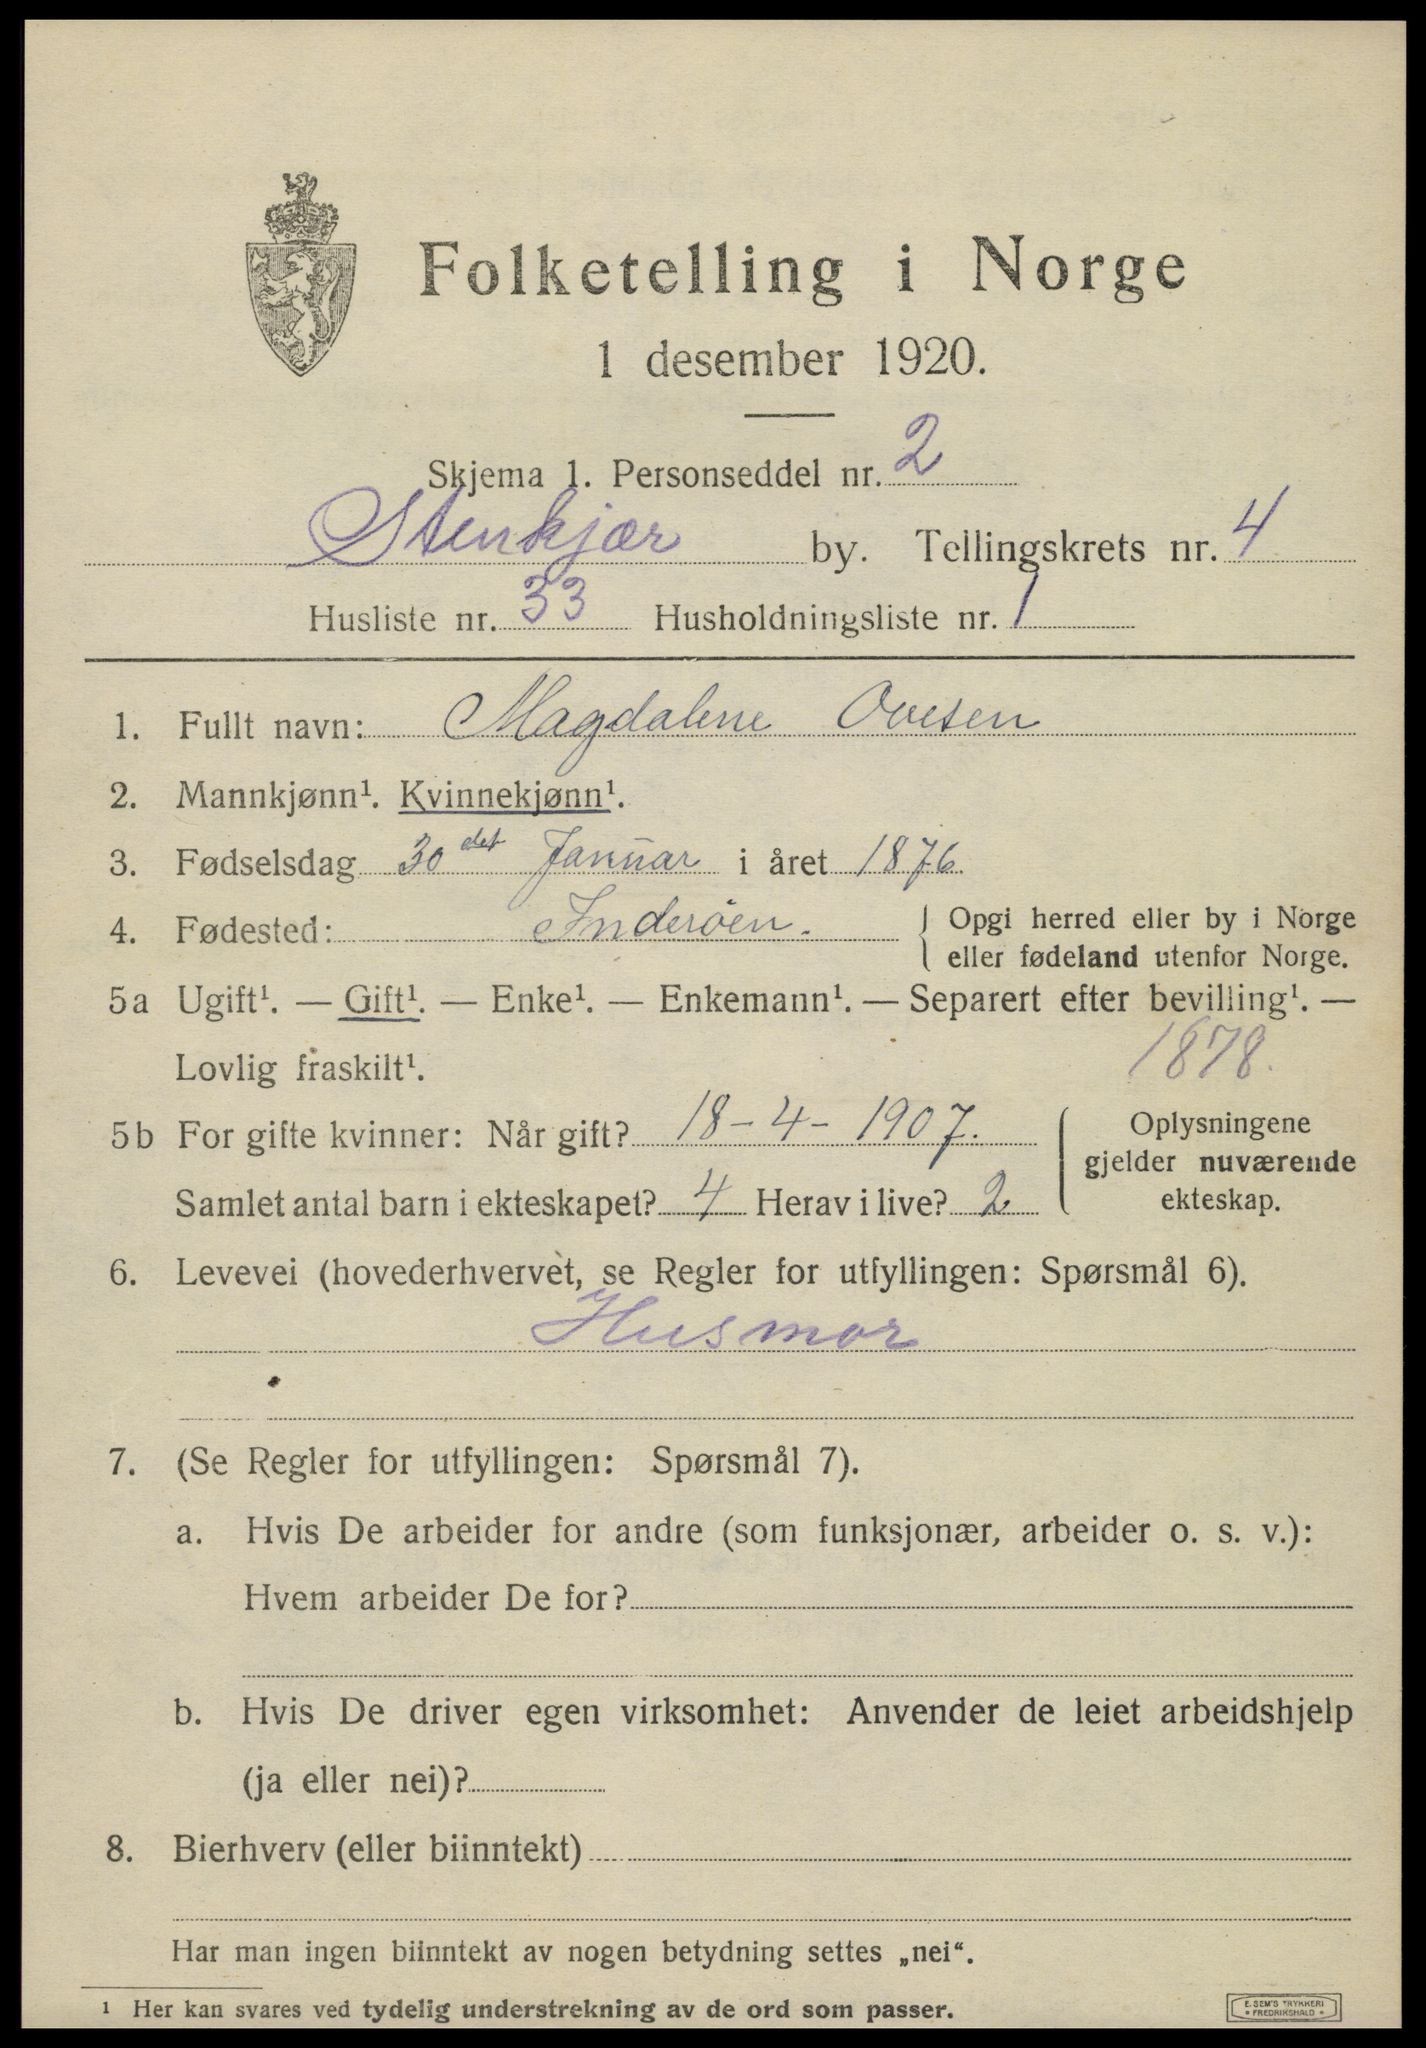 Folketelling i Norge
1 desember 1920.
Skjema 1. Personseddel nr. 2
Stenkjær by. Tellingskrets nr. 4
Husliste nr. 33 Husholdningsliste nr. 1
1. Fullt navn: Magdalene Ovesen
2. Mannkjønn¹. Kvinnekjønn¹.
3. Fødselsdag 30 det Januar i året 1876.
4. Fødested: Inderöen. { Opgi herred eller by i Norge
eller fødeland utenfor Norge.
5a Ugift¹. — Gift¹. — Enke¹. — Enkemann¹. — Separert efter bevilling¹. —
Lovlig fraskilt¹. 1878.
5b For gifte kvinner: Når gift? 18-4-1907. Oplysningene
gjelder nuværende
Samlet antal barn i ekteskapet? 4 Herav i live? 2 ekteskap.
6. Levevei (hovederhvervet, se Regler for utfyllingen: Spørsmål 6).
Husmor
7. (Se Regler for utfyllingen: Spørsmål 7).
a. Hvis De arbeider for andre (som funksjonær, arbeider o. s. v.):
Hvem arbeider De for?
b. Hvis De driver egen virksomhet: Anvender de leiet arbeidshjelp
(ja eller nei)?
8. Bierhverv (eller biinntekt)
Har man ingen biinntekt av nogen betydning settes „nei“.
1 Her kan svares ved tydelig understrekning av de ord som passer.
E. SEM'S TRYKKERI
* FREDRIKSHALD *